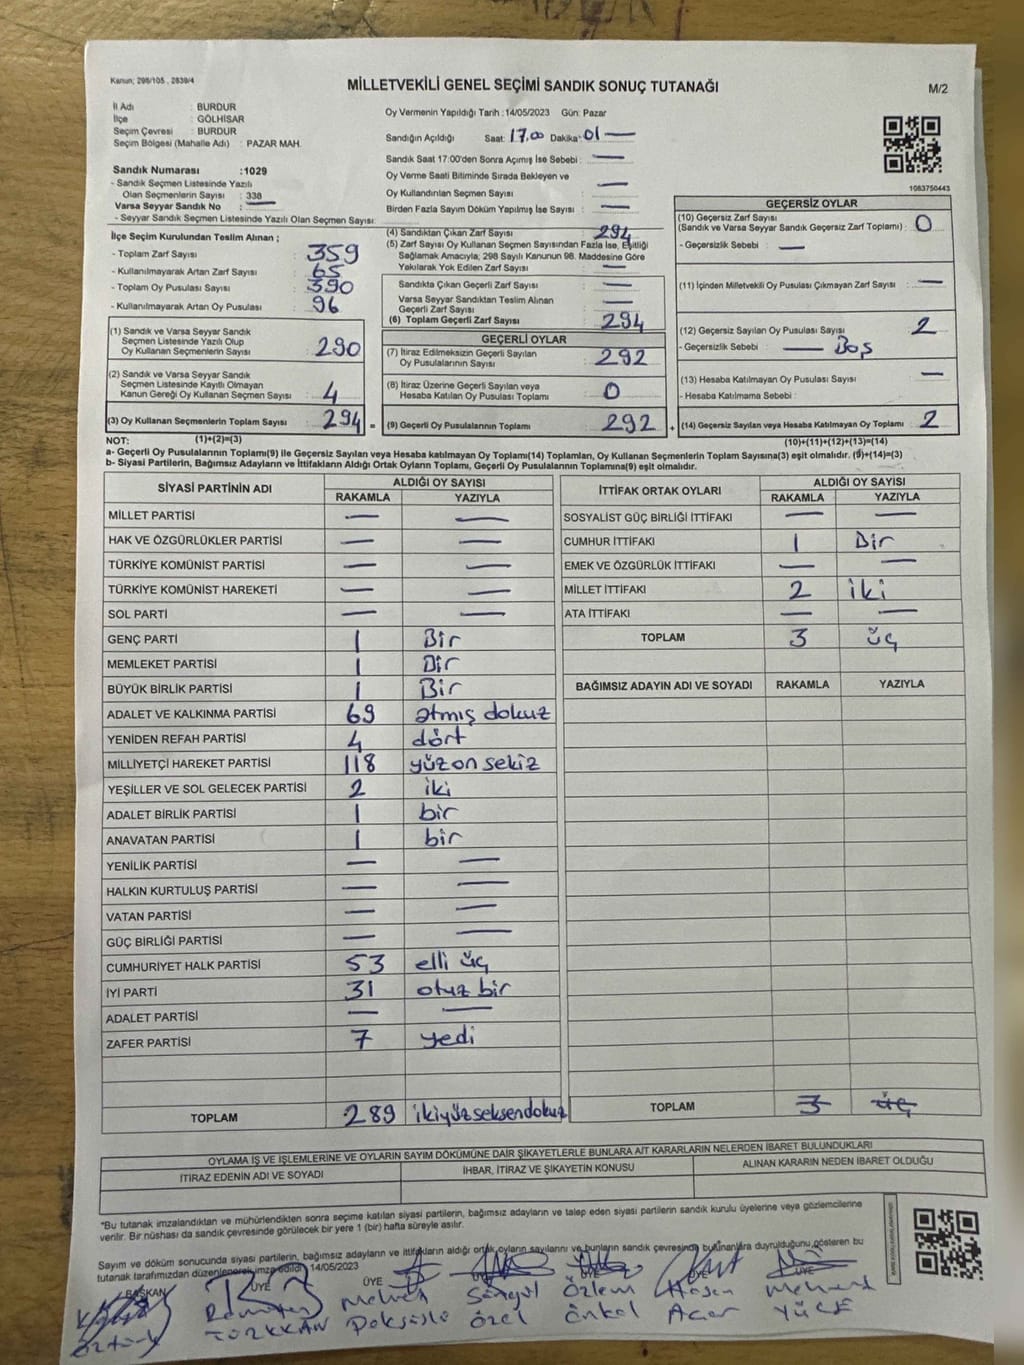 Kanun; 298/105 , 2839/4
MİLLETVEKİLİ GENEL SEÇİMİ SANDIK SONUÇ TUTANAĞI
M/2
İl Adı : BURDUR
İlçe : GÖLHİSAR
Seçim Çevresi : BURDUR
Seçim Bölgesi (Mahalle Adı) : PAZAR MAH.
Sandık Numarası :1029
- Sandık Seçmen Listesinde Yazılı
Olan Seçmenlerin Sayısı : 338
Varsa Seyyar Sandık No : —
- Seyyar Sandık Seçmen Listesinde Yazılı Olan Seçmen Sayısı:
Oy Vermenin Yapıldığı Tarih :14/05/2023 Gün: Pazar
Sandığın Açıldığı Saat: 17.00 Dakika: 01 —
Sandık Saat 17:00'den Sonra Açımış İse Sebebi : —
Oy Verme Saati Bitiminde Sırada Bekleyen ve
Oy Kullandırılan Seçmen Sayısı : —
Birden Fazla Sayım Döküm Yapılmış İse Sayısı : —
1083750443
İlçe Seçim Kurulundan Teslim Alınan ;
- Toplam Zarf Sayısı : 359
- Kullanılmayarak Artan Zarf Sayısı : 65
- Toplam Oy Pusulası Sayısı : 390
- Kullanılmayarak Artan Oy Pusulası : 96
(1) Sandık ve Varsa Seyyar Sandık
Seçmen Listesinde Yazılı Olup
Oy Kullanan Seçmenlerin Sayısı : 290
(2) Sandık ve Varsa Seyyar Sandık
Seçmen Listesinde Kayıtlı Olmayan
Kanun Gereği Oy Kullanan Seçmen Sayısı : 4
(3) Oy Kullanan Seçmenlerin Toplam Sayısı : 294 =
(4) Sandıktan Çıkan Zarf Sayısı : 294
(5) Zarf Sayısı Oy Kullanan Seçmen Sayısından Fazla İse, Eşitliği
Sağlamak Amacıyla; 298 Sayılı Kanunun 98. Maddesine Göre
Yakılarak Yok Edilen Zarf Sayısı : —
Sandıkta Çıkan Geçerli Zarf Sayısı : —
Varsa Seyyar Sandıktan Teslim Alınan
Geçerli Zarf Sayısı : —
(6) Toplam Geçerli Zarf Sayısı : 294
GEÇERLİ OYLAR
(7) İtiraz Edilmeksizin Geçerli Sayılan
Oy Pusulalarının Sayısı : 292
(8) İtiraz Üzerine Geçerli Sayılan veya
Hesaba Katılan Oy Pusulası Toplamı : 0
(9) Geçerli Oy Pusulalarının Toplamı : 292 +
GEÇERSİZ OYLAR
(10) Geçersiz Zarf Sayısı
(Sandık ve Varsa Seyyar Sandık Geçersiz Zarf Toplamı) : 0
- Geçersizlik Sebebi : —
(11) İçinden Milletvekili Oy Pusulası Çıkmayan Zarf Sayısı : —
(12) Geçersiz Sayılan Oy Pusulası Sayısı : 2
- Geçersizlik Sebebi : — Boş
(13) Hesaba Katılmayan Oy Pusulası Sayısı : —
- Hesaba Katılmama Sebebi :
(14) Geçersiz Sayılan veya Hesaba Katılmayan Oy Toplamı : 2
NOT: (1)+(2)=(3)
(10)+(11)+(12)+(13)=(14)
a- Geçerli Oy Pusulasının Toplamı(9) ile Geçersiz Sayılan veya Hesaba katılmayan Oy Toplamı(14) Toplamları, Oy Kullanan Seçmenlerin Toplam Sayısına(3) eşit olmalıdır. (9)+(14)=(3)
b- Siyasi Partilerin, Bağımsız Adayların ve İttifakların Aldığı Ortak Oyların Toplamı, Geçerli Oy Pusulalarının Toplamına(9) eşit olmalıdır.
SİYASİ PARTİNİN ADI ALDIĞI OY SAYISI
RAKAMLA YAZIYLA
MİLLET PARTİSİ — —
HAK VE ÖZGÜRLÜKLER PARTİSİ — —
TÜRKİYE KOMÜNİST PARTİSİ — —
TÜRKİYE KOMÜNİST HAREKETİ — —
SOL PARTİ — —
GENÇ PARTİ 1 Bir
MEMLEKET PARTİSİ 1 Bir
BÜYÜK BİRLİK PARTİSİ 1 Bir
ADALET VE KALKINMA PARTİSİ 69 atmış dokuz
YENİDEN REFAH PARTİSİ 4 dört
MİLLİYETÇİ HAREKET PARTİSİ 118 yüz on sekiz
YEŞİLLER VE SOL GELECEK PARTİSİ 2 iki
ADALET BİRLİK PARTİSİ 1 bir
ANAVATAN PARTİSİ 1 bir
YENİLİK PARTİSİ — —
HALKIN KURTULUŞ PARTİSİ — —
VATAN PARTİSİ — —
GÜÇ BİRLİĞİ PARTİSİ — —
CUMHURİYET HALK PARTİSİ 53 elli üç
İYİ PARTİ 31 otuz bir
ADALET PARTİSİ — —
ZAFER PARTİSİ 7 yedi
TOPLAM 289 ikiyüzseksendokuz
İTTİFAK ORTAK OYLARI ALDIĞI OY SAYISI
RAKAMLA YAZIYLA
SOSYALİST GÜÇ BİRLİĞİ İTTİFAKI — —
CUMHUR İTTİFAKI 1 Bir
EMEK VE ÖZGÜRLÜK İTTİFAKI — —
MİLLET İTTİFAKI 2 iki
ATA İTTİFAKI — —
TOPLAM 3 üç
BAĞIMSIZ ADAYIN ADI VE SOYADI RAKAMLA YAZIYLA
TOPLAM 3 üç
OYLAMA İŞ VE İŞLEMLERİNE VE OYLARIN SAYIM DÖKÜMÜNE DAİR ŞİKAYETLERLE BUNLARA AİT KARARLARIN NELERDEN İBARET BULUNDUKLARI
İTİRAZ EDENİN ADI VE SOYADI İHBAR, İTİRAZ VE ŞİKAYETİN KONUSU ALINAN KARARIN NEDEN İBARET OLDUĞU
*Bu tutanak imzalandıktan ve mühürlendikten sonra seçime katılan siyasi partilerin, bağımsız adayların ve talep eden siyasi partilerin sandık kurulu üyelerine veya gözlemcilerine
verilir. Bir nüshası da sandık çevresinde görülecek bir yere 1 (bir) hafta süreyle asılır.
Sayım ve döküm sonucunda siyasi partilerin, bağımsız adayların ve ittifakların aldığı ortak oyların sayılarını ve bunların sandık çevresinde bulunanlara duyrulduğunu gösteren bu
tutanak tarafımızdan düzenlenerek imza edildi 14/05/2023
BAŞKAN ÜYE ÜYE ÜYE ÜYE ÜYE ÜYE
Ramazan Mehmet Songül Özlem Hasan Mehmet
Öztürk TÜRKKAN Özel Önkal Acar YÜCE